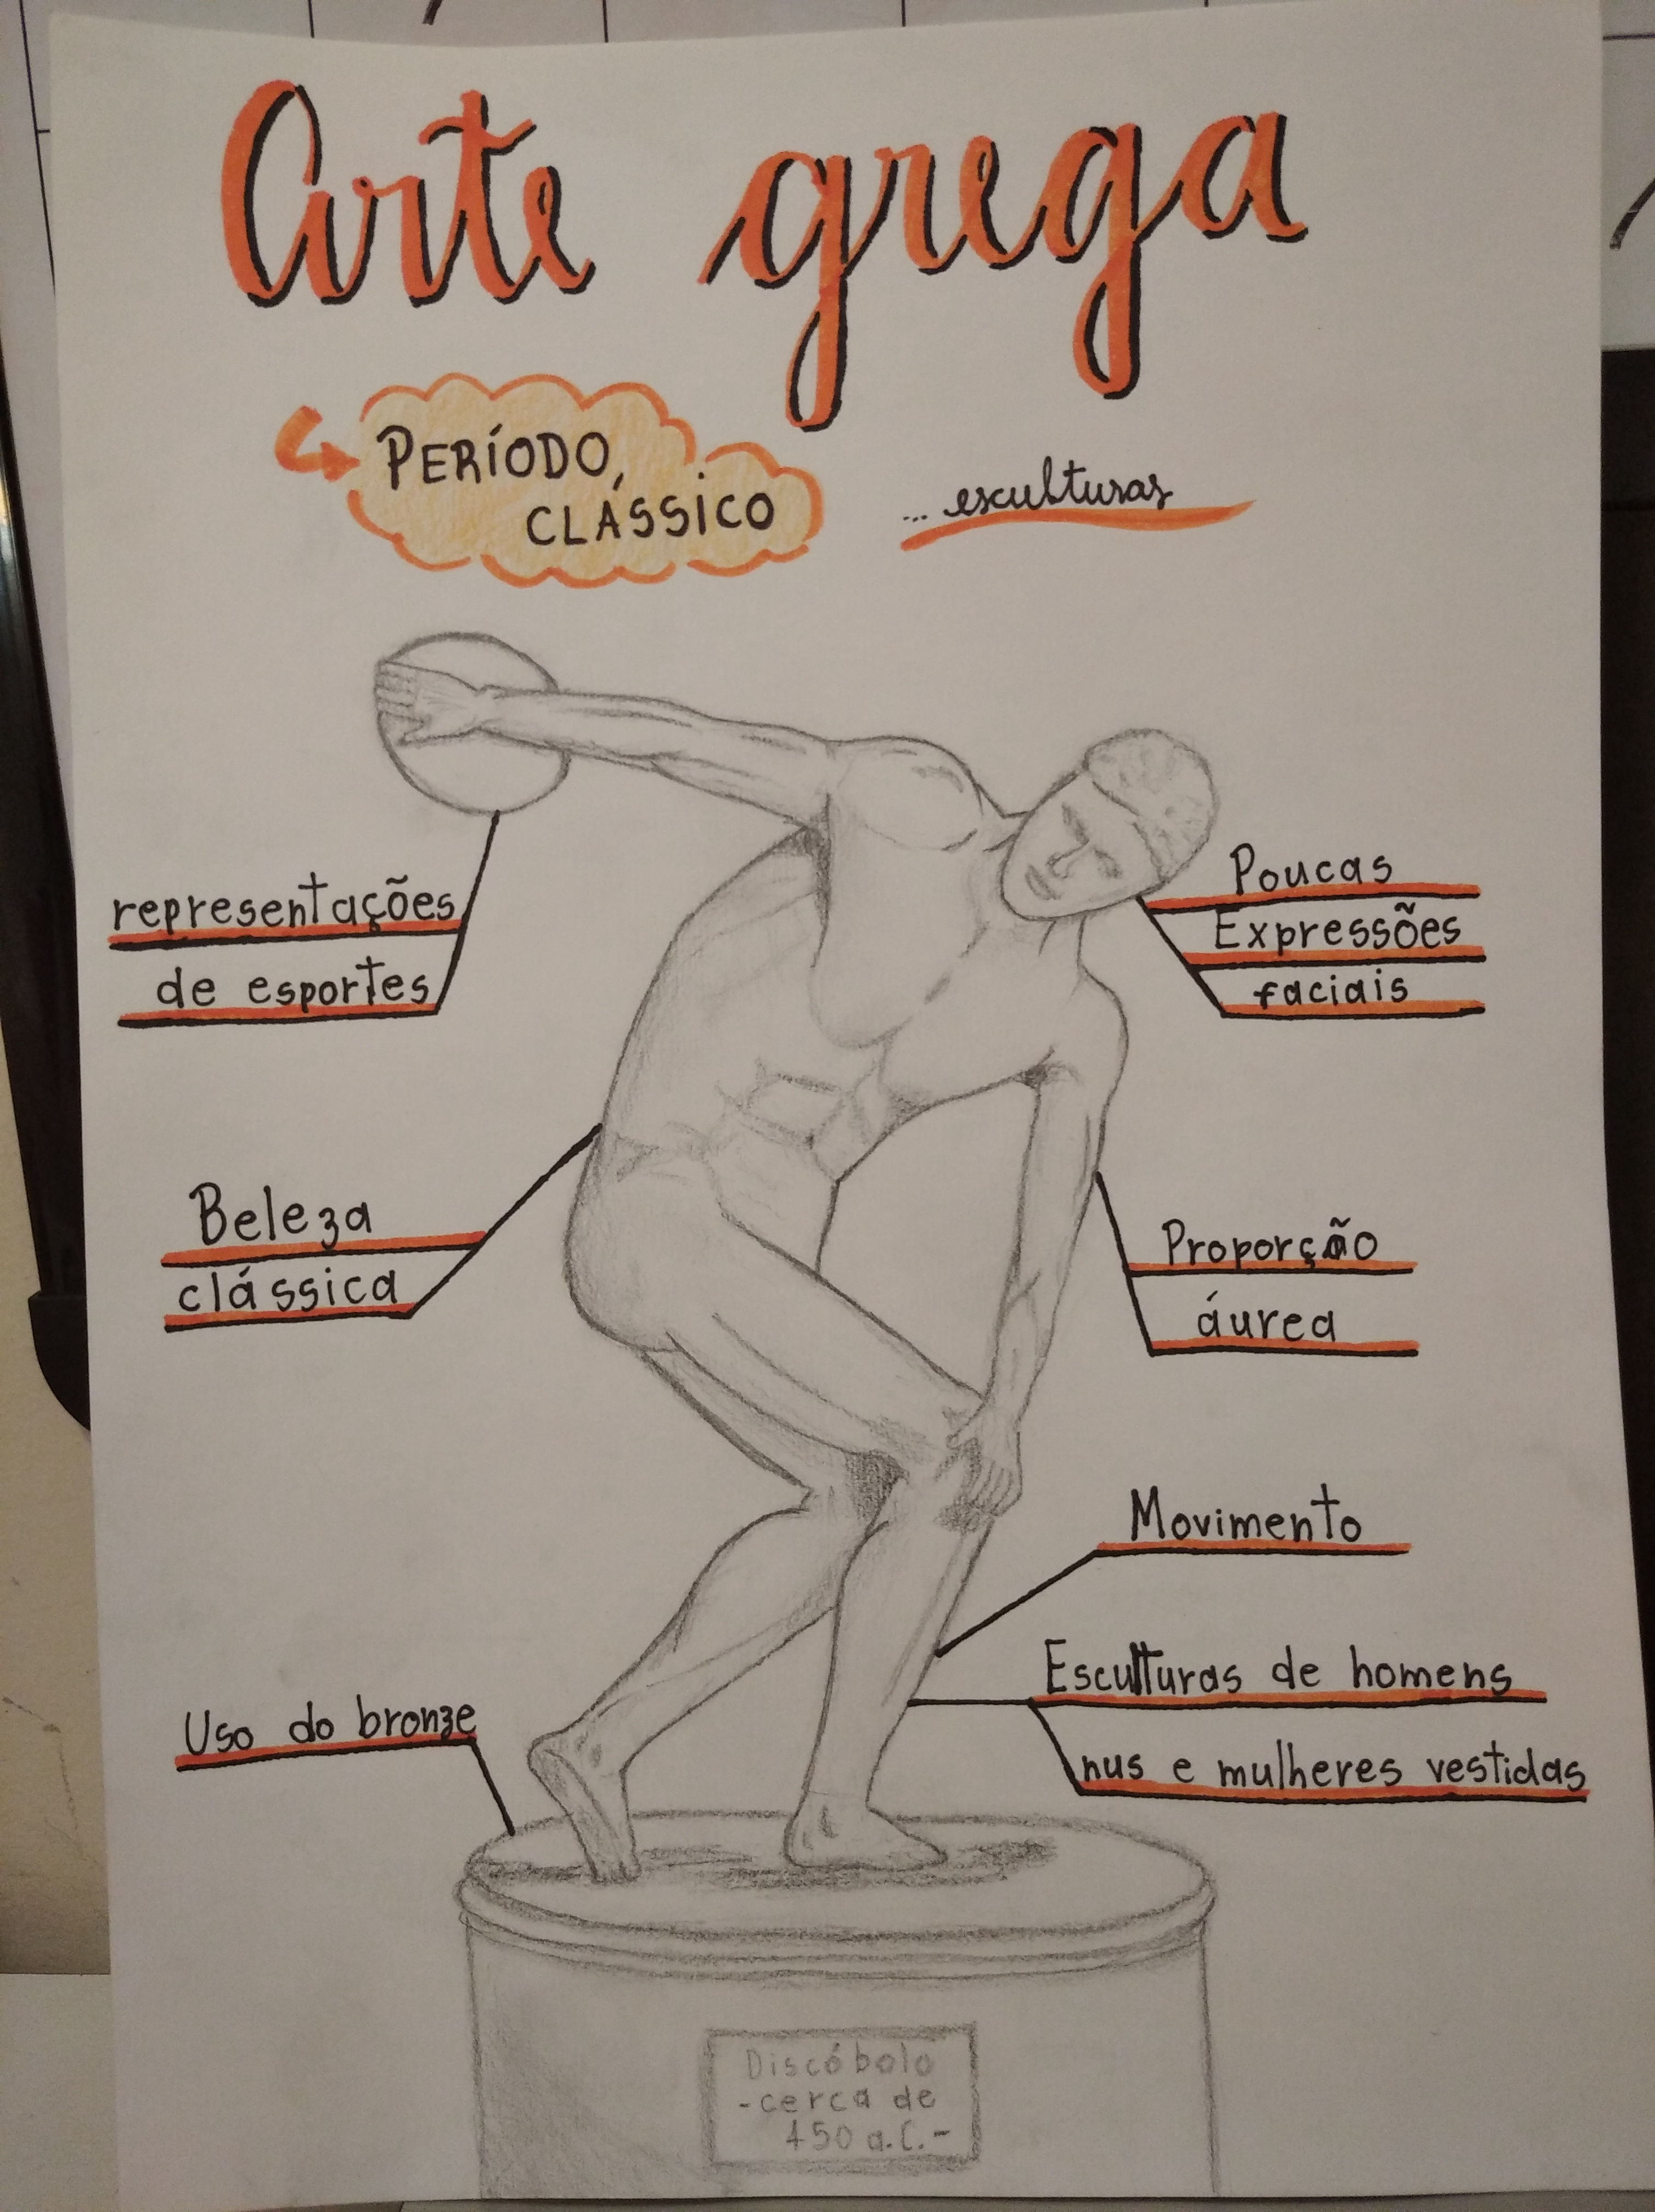 Arte grega
PERÍODO
CLÁSSICO
... esculturas
representações
de esportes
Poucas
Expressões
faciais
Beleza
clássica
Proporção
áurea
Movimento
Esculturas de homens
nus e mulheres vestidas
Uso do bronze
Discóbolo
-cerca de
450 a.C.-